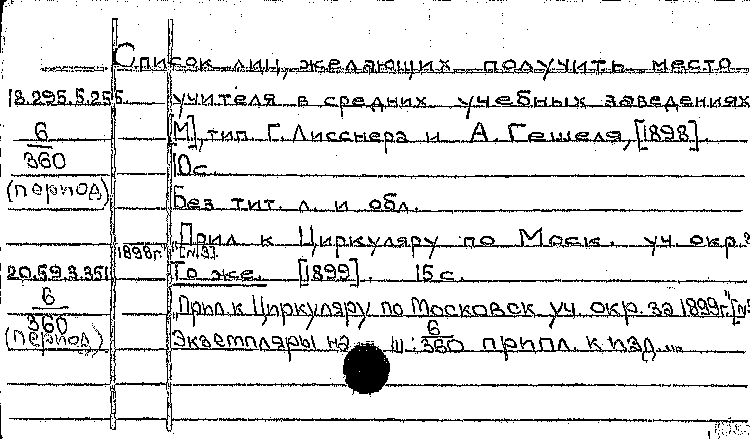 Список лиц, желающих получить место
18.295.5.255 учителя в средних учебных заведениях
6/360 [М], тип. Г. Лисснера и А. Гешеля, [1898].
10 с.
(период) Без тит. л. и обл.
"Прил. к Циркуляру по Моск. уч. окр. за
1898 г." [№ 3].
20.59.3.351 То же. [1899]. 15 с.
6/360 "Прил. к Циркуляру по Московск. уч. окр. за 1899 г." [№
(период) Экземпляры на Ш: 6/360 припл. к изд. ...